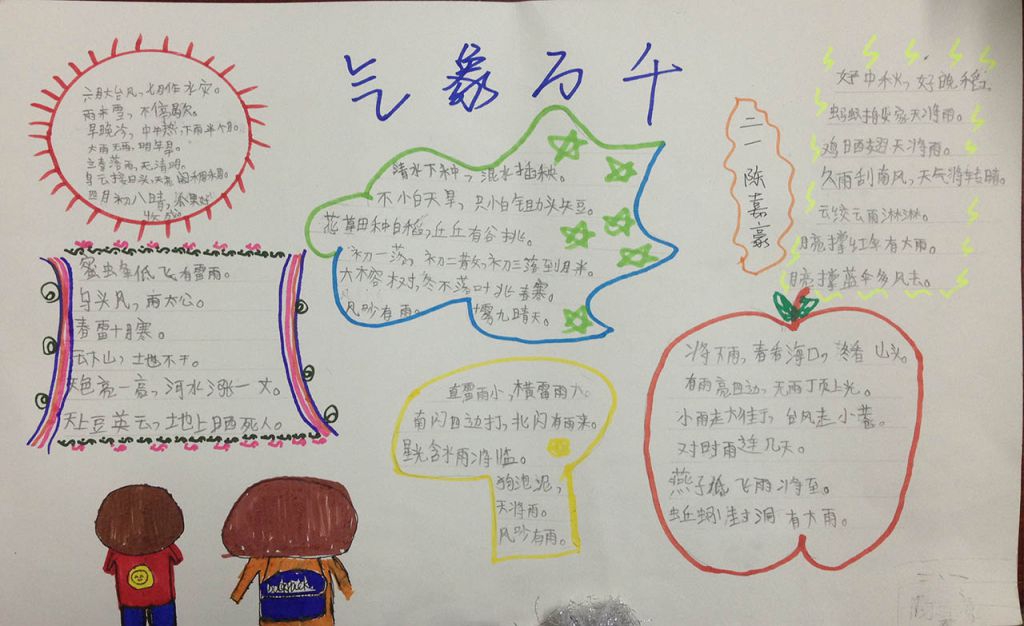 气象万千
六月大台风，七月作水灾。
雨来雪，不停歇。
早晚冷，中午热，下雨半个月。
大雨无西，明早旱。
立春落雨，天清明。
四月初八晴，
蜜虫争低飞有雷雨。
乌头风，雨太公。
春雷十月寒。
云下山，土也不干。
天色亮一亮，河水涨一丈。
天上豆英云，土也上晒死人。
清水下种，混水插秧。
不小白天旱，只小白气助头头豆。
花草田种白稻，丘丘有谷挑。
初一落，初二散，初三落到月半。
冬不落叶兆春寒。
风吵有雨。
雾九晴天。
二一 陈嘉豪
好中秋，好晚稻。
蚂蚁搬家天将雨。
鸡晒翅天将雨。
久雨刮南风，天气将转晴。
云绞云雨淋淋。
月亮撑红伞有大雨。
月亮撑蓝伞多风去。
直雷雨小，横雷雨大。
南闪四边打，北闪有雨来。
星光含水雨将临。
狗泡泥，
天将雨。
风吵有雨。
将下雨，春看海口，冬看山头。
有雨亮四边，无雨丁页上光。
台风走小暑。
对时雨连几天。
燕子低飞雨将至。
蚯蚓封洞有大雨。